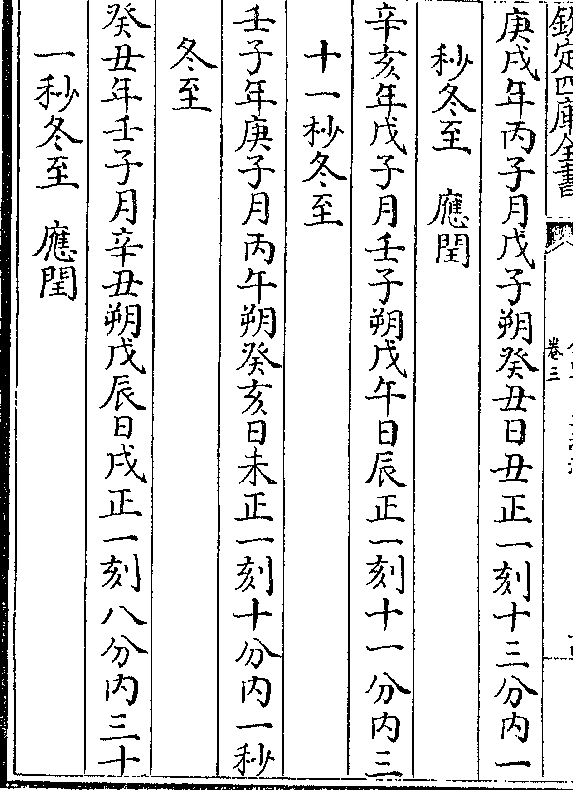 欽定四庫全書
卷三
庚戌年丙子月戊子朔癸丑日丑正一刻十三分内一
秒冬至　應閏
辛亥年戊子月壬子朔戊午日辰正一刻十一分内三
十一秒冬至
壬子年庚子月丙午朔癸亥日未正一刻十分内一秒
冬至
癸丑年壬子月辛丑朔戊辰日戌正一刻八分内三十
一秒冬至　應閏